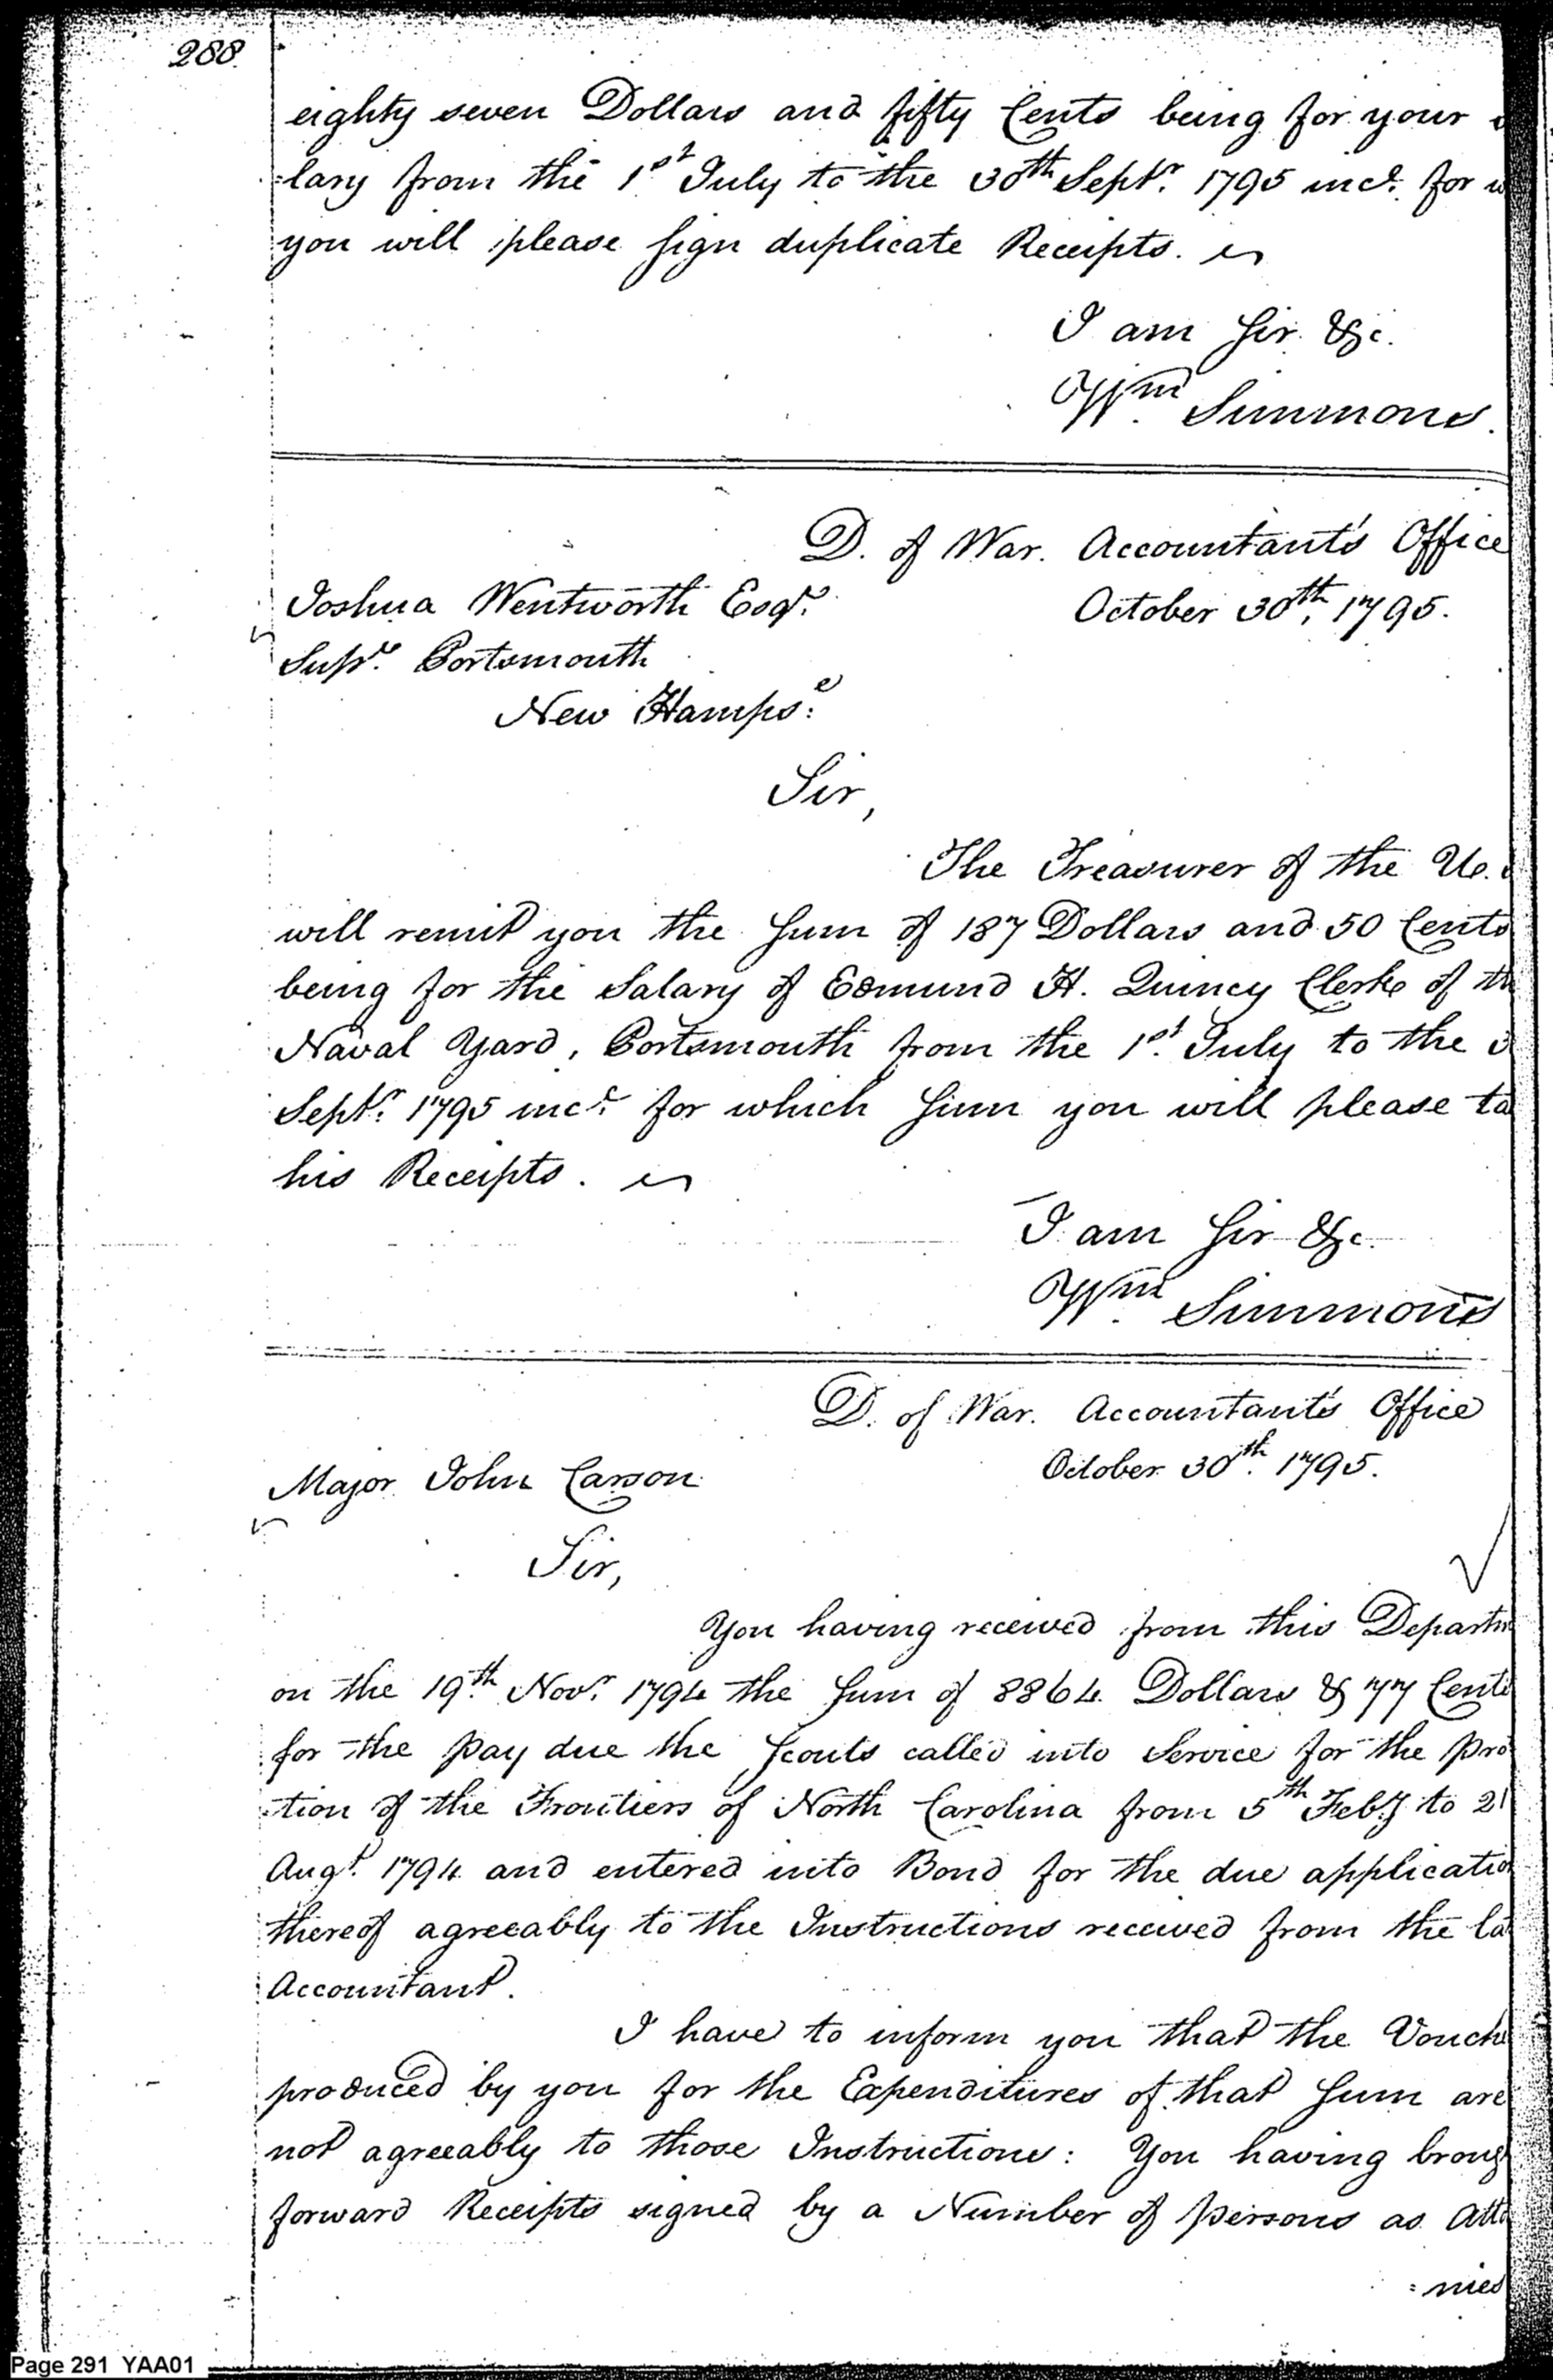 288
eighty seven Dollars and fifty Cents being for your
=lary from the 1st July to the 30th Septr. 1795 incl. for
you will please sign duplicate Receipts.
I am Sir &c.
Wm. Simmons.
D. of War. Accountant's Office
Joshua Wentworth Esqr. October 30th, 1795.
Supr. Portsmouth
New Hampse:
Sir,
The Treasurer of the U.
will remit you the Sum of 187 Dollars and 50 Cents
being for the Salary of Edmund H. Quincy Clerk of th
Naval Yard, Portsmouth from the 1st. July to the
Septr. 1795 incl. for which Sum you will please ta
his Receipts.
I am Sir &c.
Wm. Simmons
D. of War. Accountant's Office
October 30th. 1795.
Major John Carson
Sir,
You having received from this Departm
on the 19th. Novr. 1794 the Sum of 8864. Dollars & 77 Cents
for the pay due the Scouts called into Service for the pro
=tion of the Frontiers of North Carolina from 5th Feby to 21
Augt. 1794 and entered into Bond for the due applicatio
thereof agreeably to the Instructions received from the la
Accountant.
I have to inform you that the Vouch
produced by you for the Expenditures of that Sum are
not agreeably to those Instructions: You having broug
forward Receipts signed by a Number of persons as Atto
=nies
Page 291 YAA01